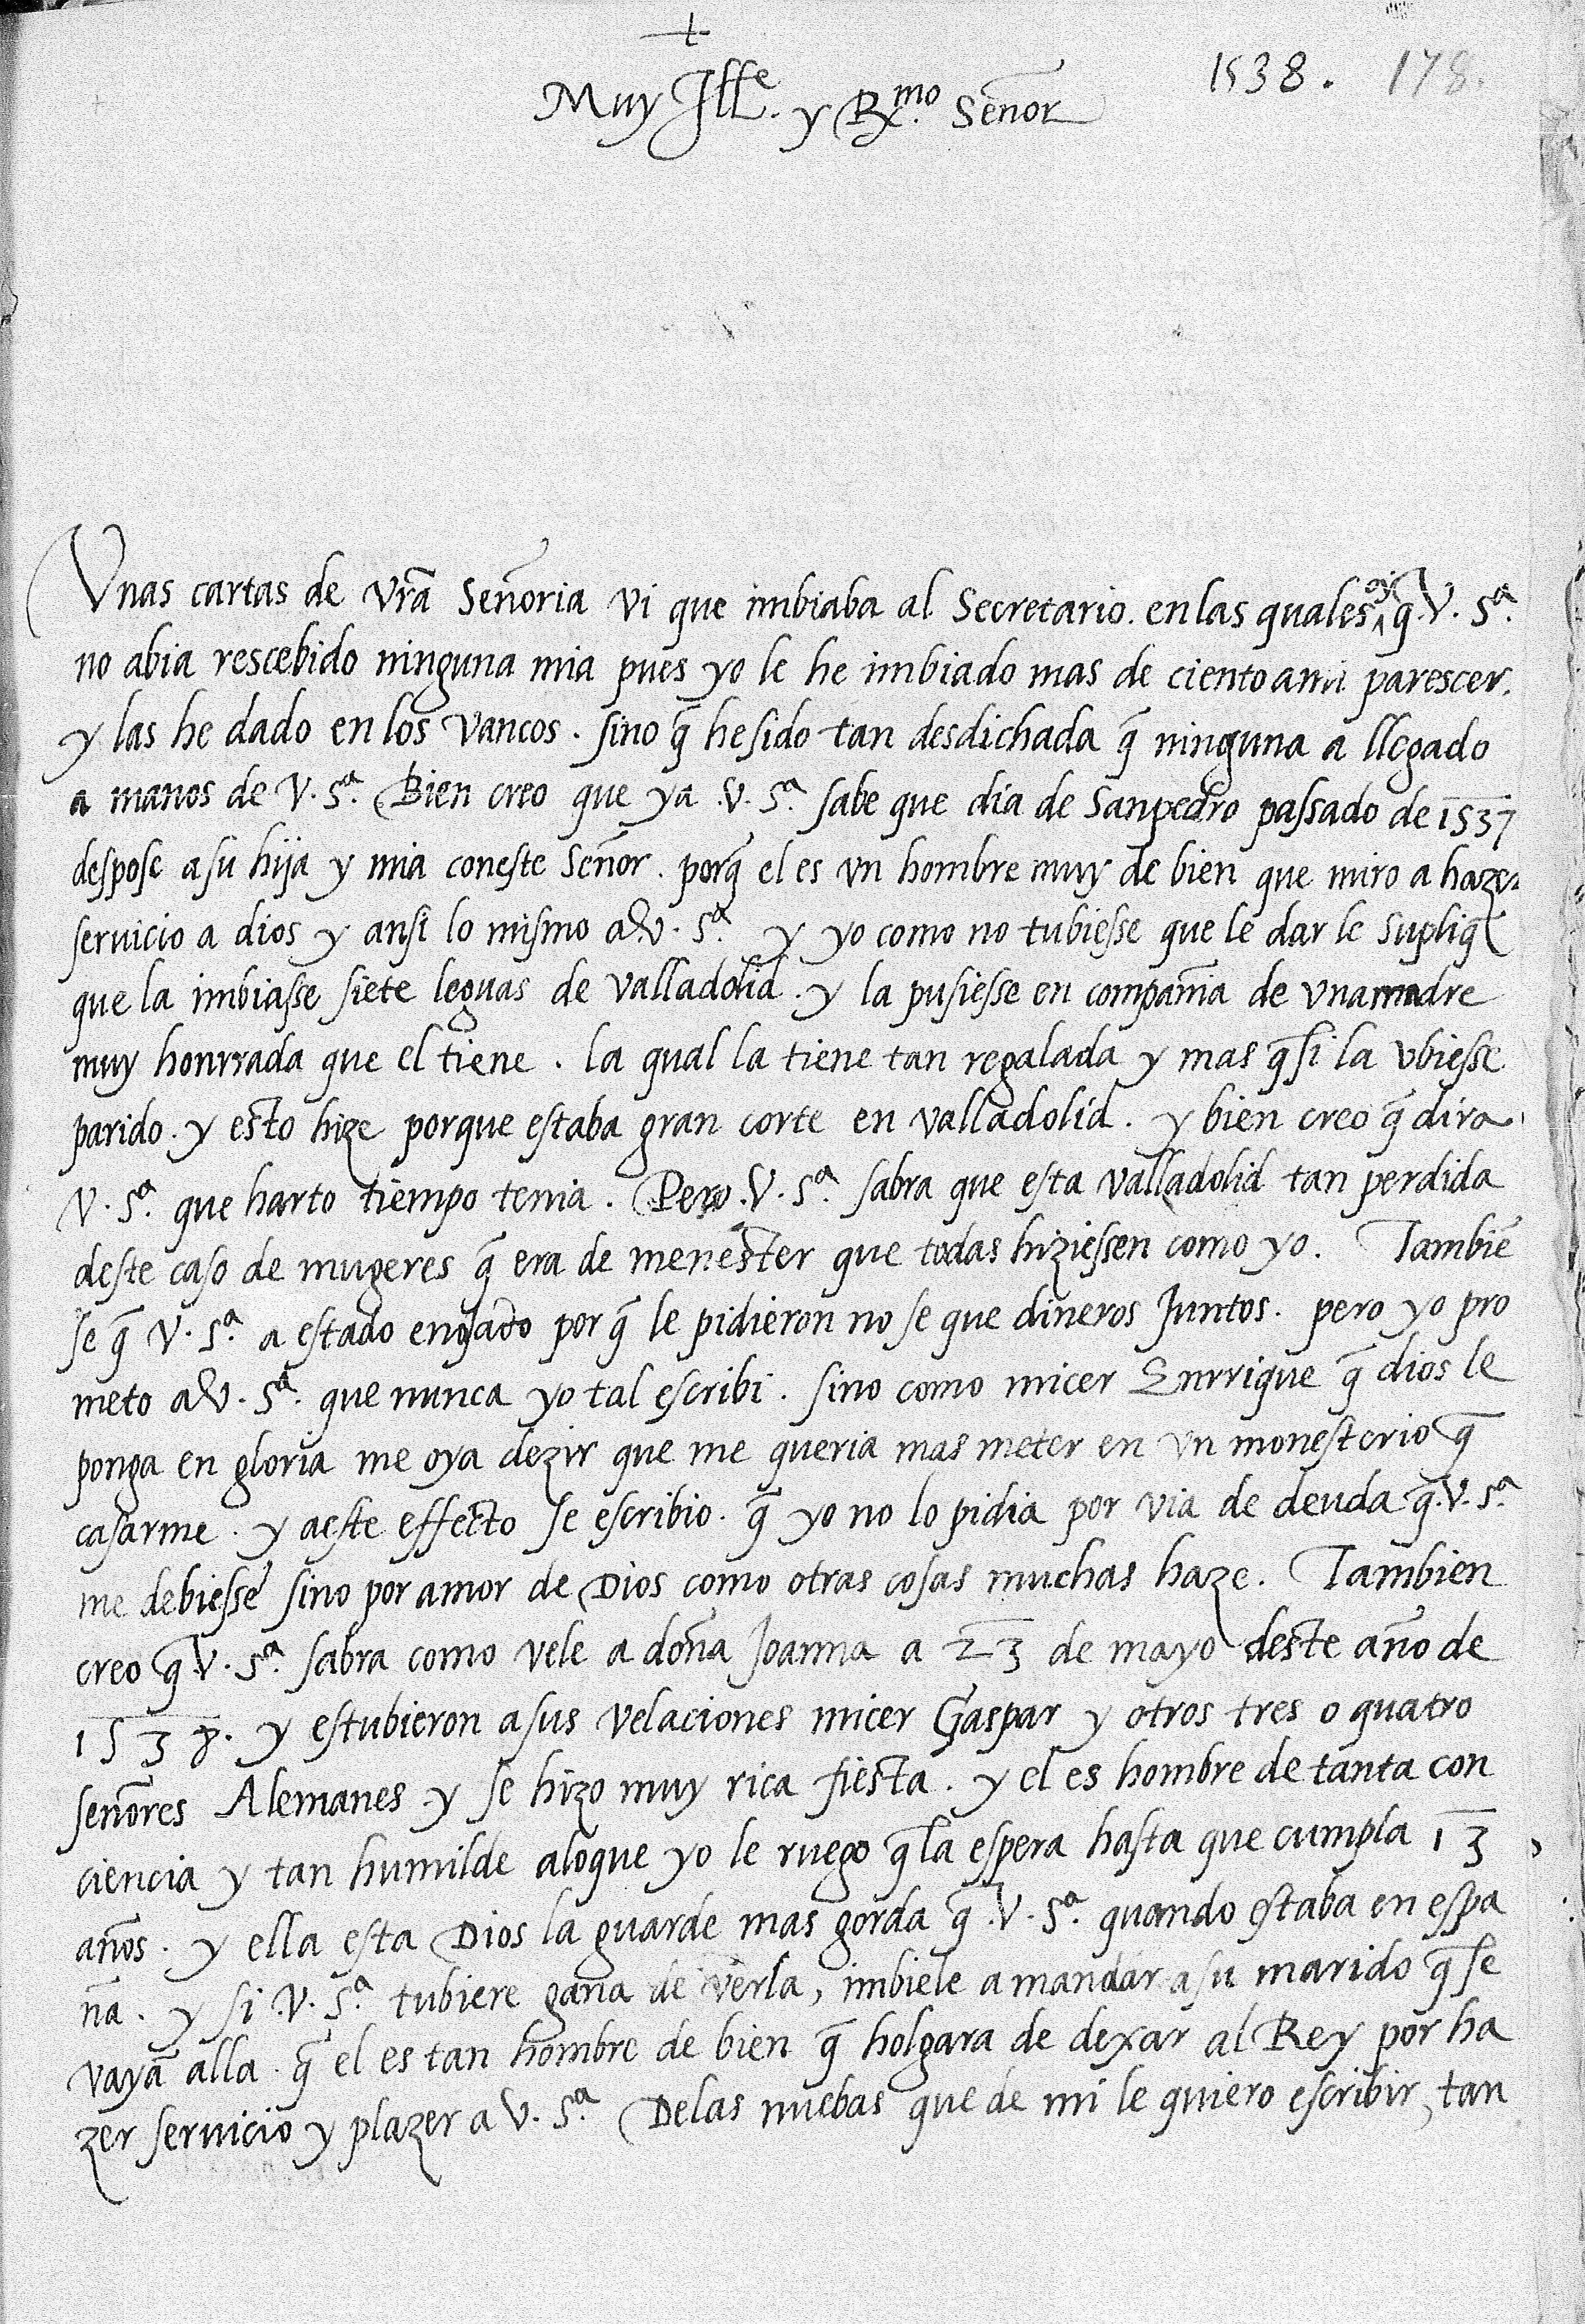 +
1538. 178.
Muy Ille. y Rx.mo Señor
Vnas cartas de vrã Señoria vi que imbiaba al Secretario. en las quales oy q̃ .V. Sª.
no abia rescebido ninguna mia pues yo le he imbiado mas de ciento a mi parescer.
y las he dado en los vancos. sino q̃ he sido tan desdichada q̃ ninguna a llegado
a manos de V. Sª. Bien creo que ya .V. Sª. sabe que dia de Sanpedro passado de 1537
despose a su hija y mia con este Señor. porq̃ el es vn hombre muy de bien que miro a hazer
seruicio a dios y ansi lo mismo a .V. Sª. y yo como no tubiesse que le dar le supliq̃
que la imbiasse siete leguas de valladolid. y la pusiesse en compañia de vna madre
muy honrrada que el tiene. la qual la tiene tan regalada y mas q̃ si la vbiesse
parido. y esto hize porque estaba gran corte en valladolid. y bien creo q̃ dira
V. Sª. que harto tiempo tenia. Pero .V. Sª. sabra que esta valladolid tan perdida
deste caso de mugeres q̃ era de menester que todas hiziessen como yo. Tambiẽ
se q̃ V. Sª. a estado enojado por q̃ le pidieron no se que dineros Juntos. pero yo pro
meto a V. Sª. que nunca yo tal escribi. sino como micer Enrrique q̃ dios le
ponga en gloria me oya dezir que me queria mas meter en vn monesterio q̃
casarme. y a este effecto se escribio. q̃ yo no lo pidia por via de deuda q̃ .V. Sª.
me debiesse sino por amor de Dios como otras cosas muchas haze. Tambien
creo q̃ .V. Sª. sabra como vele a doña Joanna a 23 de mayo deste año de
1538. y estubieron a sus velaciones micer Gaspar y otros tres o quatro
señores Alemanes y se hizo muy rica fiesta. y el es hombre de tanta con
ciencia y tan humilde a lo que yo le ruego q̃ la espera hasta que cumpla 13
años. y ella esta Dios la guarde mas gorda q̃ .V. Sª. quando estaba en espa
ña. y si .V. Sª. tubiere gana de verla, imbiele a mandar a su marido q̃ se
vayã alla. q̃ el es tan hombre de bien q̃ holgara de dexar al Rey por ha
zer seruicio y plazer a V. Sª. De las nuebas que de mi le quiero escribir, tan